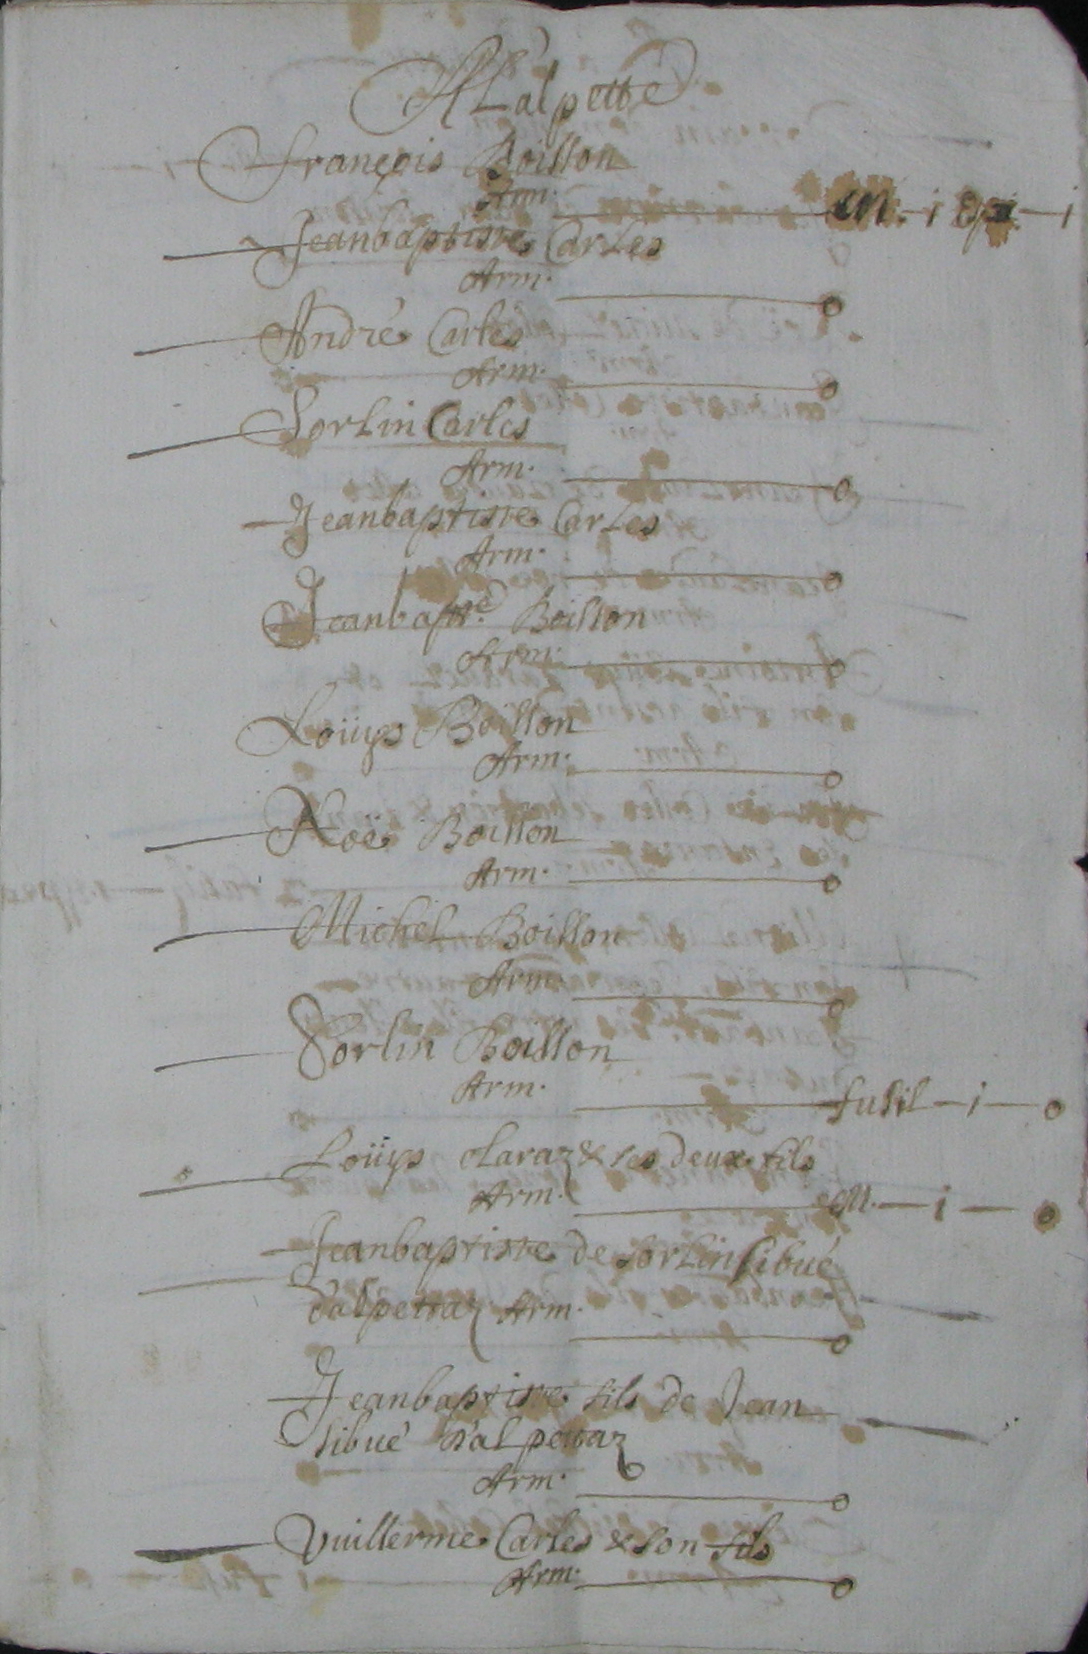 A Lalpette
François Boisson
Arm. m. 1 Esp 1 — 1
Jeanbaptiste Carles
Arm. — 0
André Carles
Arm. — 0
Sorlin Carles
Arm. — 0
Jeanbaptiste Carles
Arm. — 0
Jeanbaptᵗᵉ. Boisson
Arm. — 0
Loüys Boisson
Arm. — 0
Noë Boisson
Arm. — 0
Michel Boisson
Arm. — 0
Sorlin Boisson
Arm. — fusil — 1 — 0
Loüys Claraz & ses deux fils
Arm. — m. — 1 — 0
Jeanbaptiste de Sorlin Sibué
d'alpettaz Arm. — 0
Jeanbaptiste fils de Jean
Sibué d'alpettaz
Arm. — 0
Vuillerme Carles & son fils
Arm. — 0